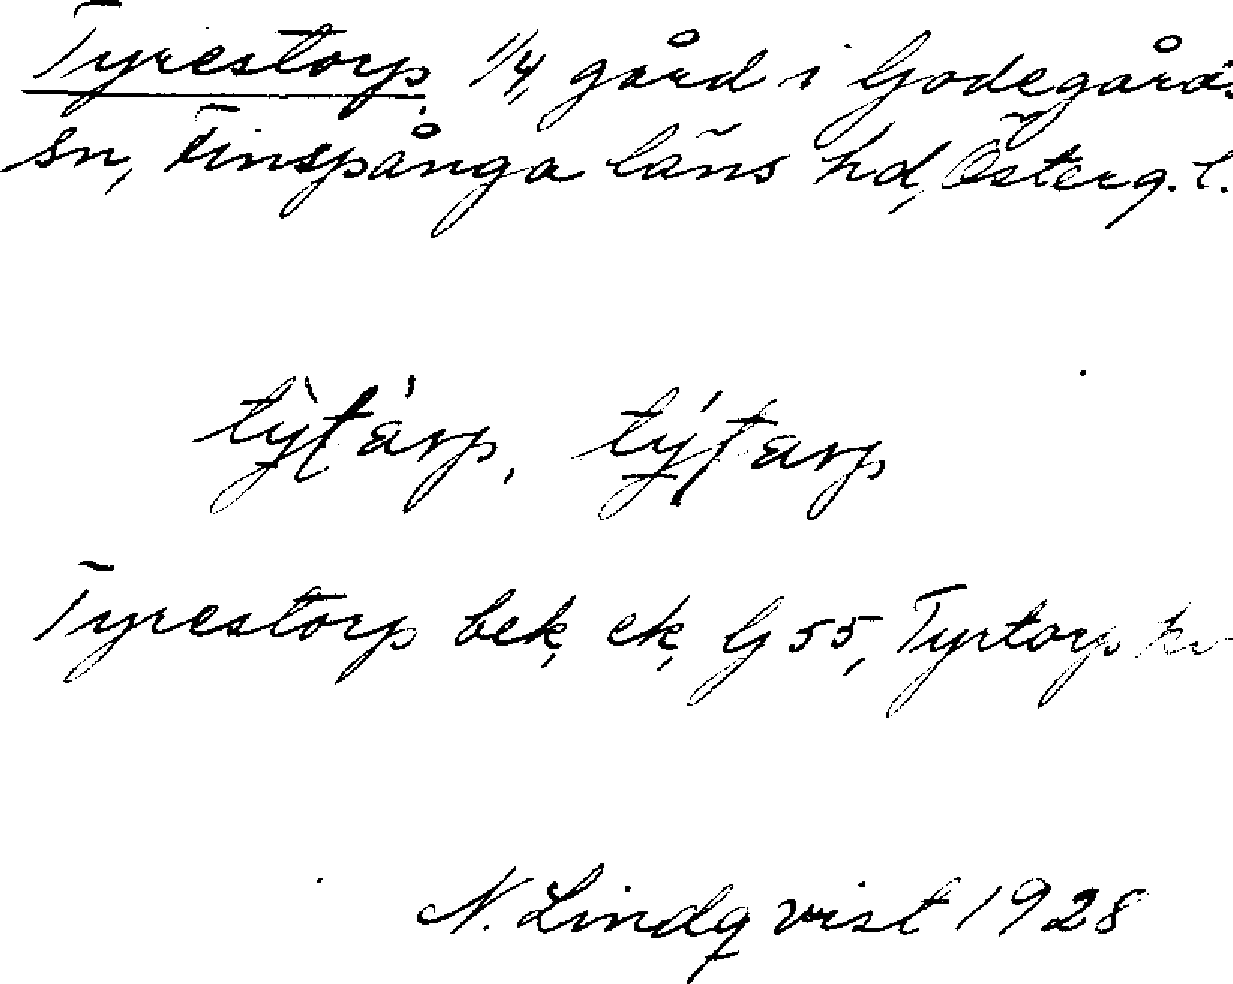 Tyrestorp, 1/4 gård i Godegårds
sn, Finspånga läns hd, Österg. l.
Tyrestorp bek, ek, G 55, Tyrtorp
N. Lindqvist 1928